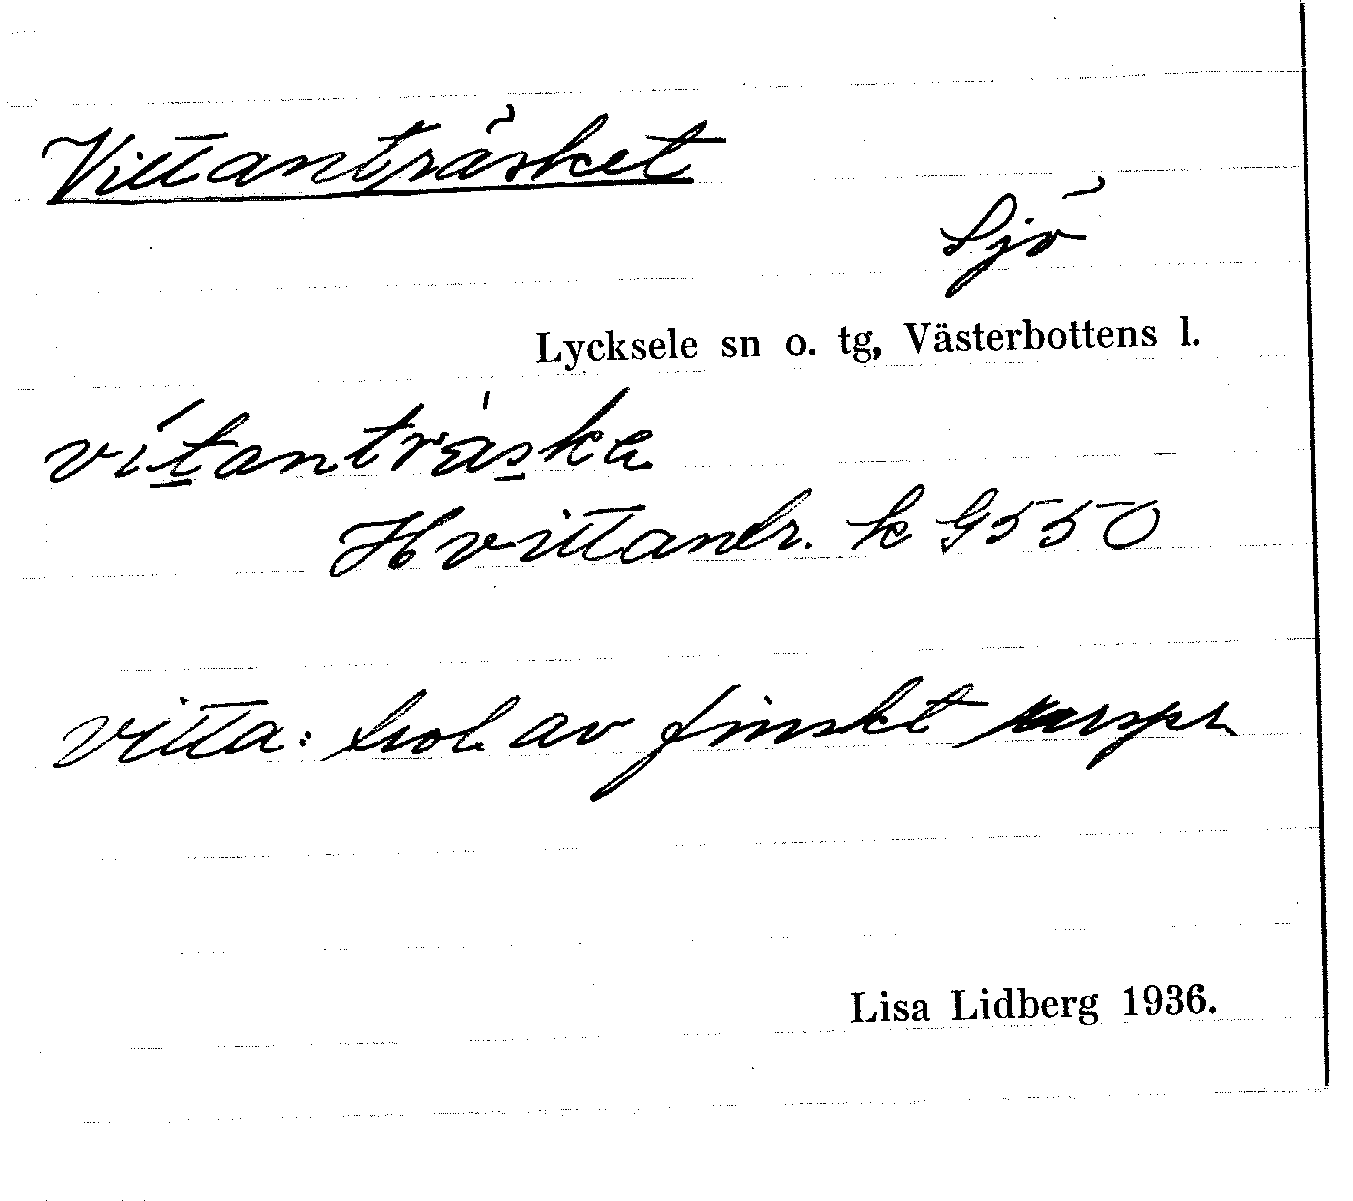 Vittanträsket
Sjö
Lycksele sn o. tg, Västerbottens l.
vítanträska
Hvittantr. k G550
vitta: trol. av finskt urspr.
Lisa Lidberg 1936.